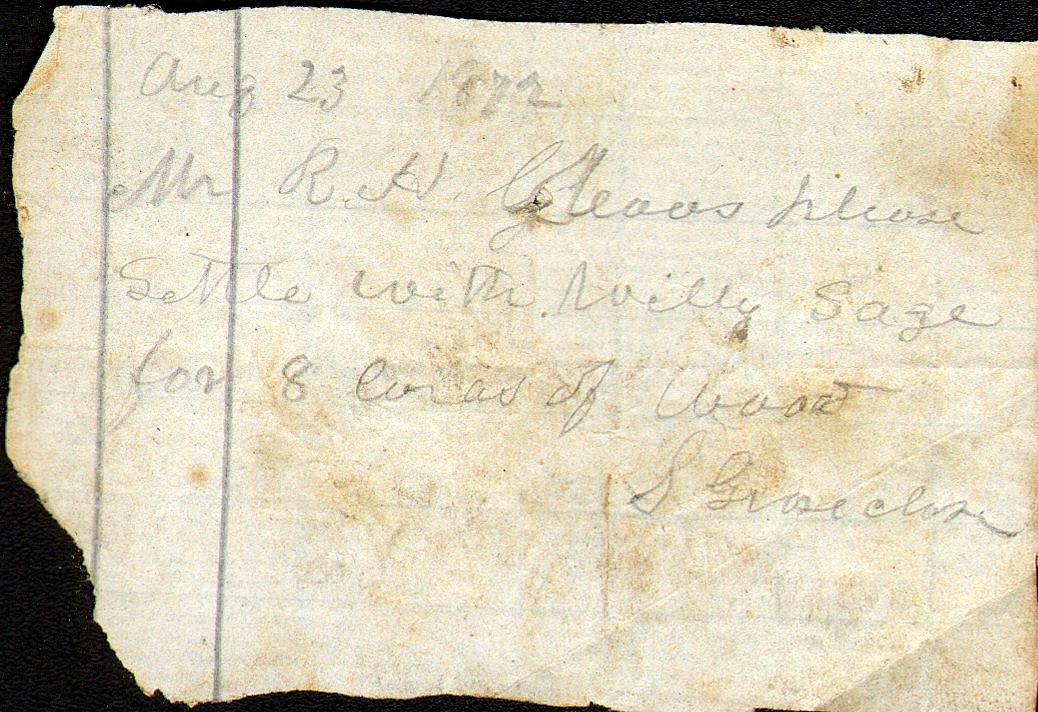 Aug 23 1872
Mr R. H. Gleaves please
Settle with Willy Sage
for 8 Cords of Wood
S Groseclose